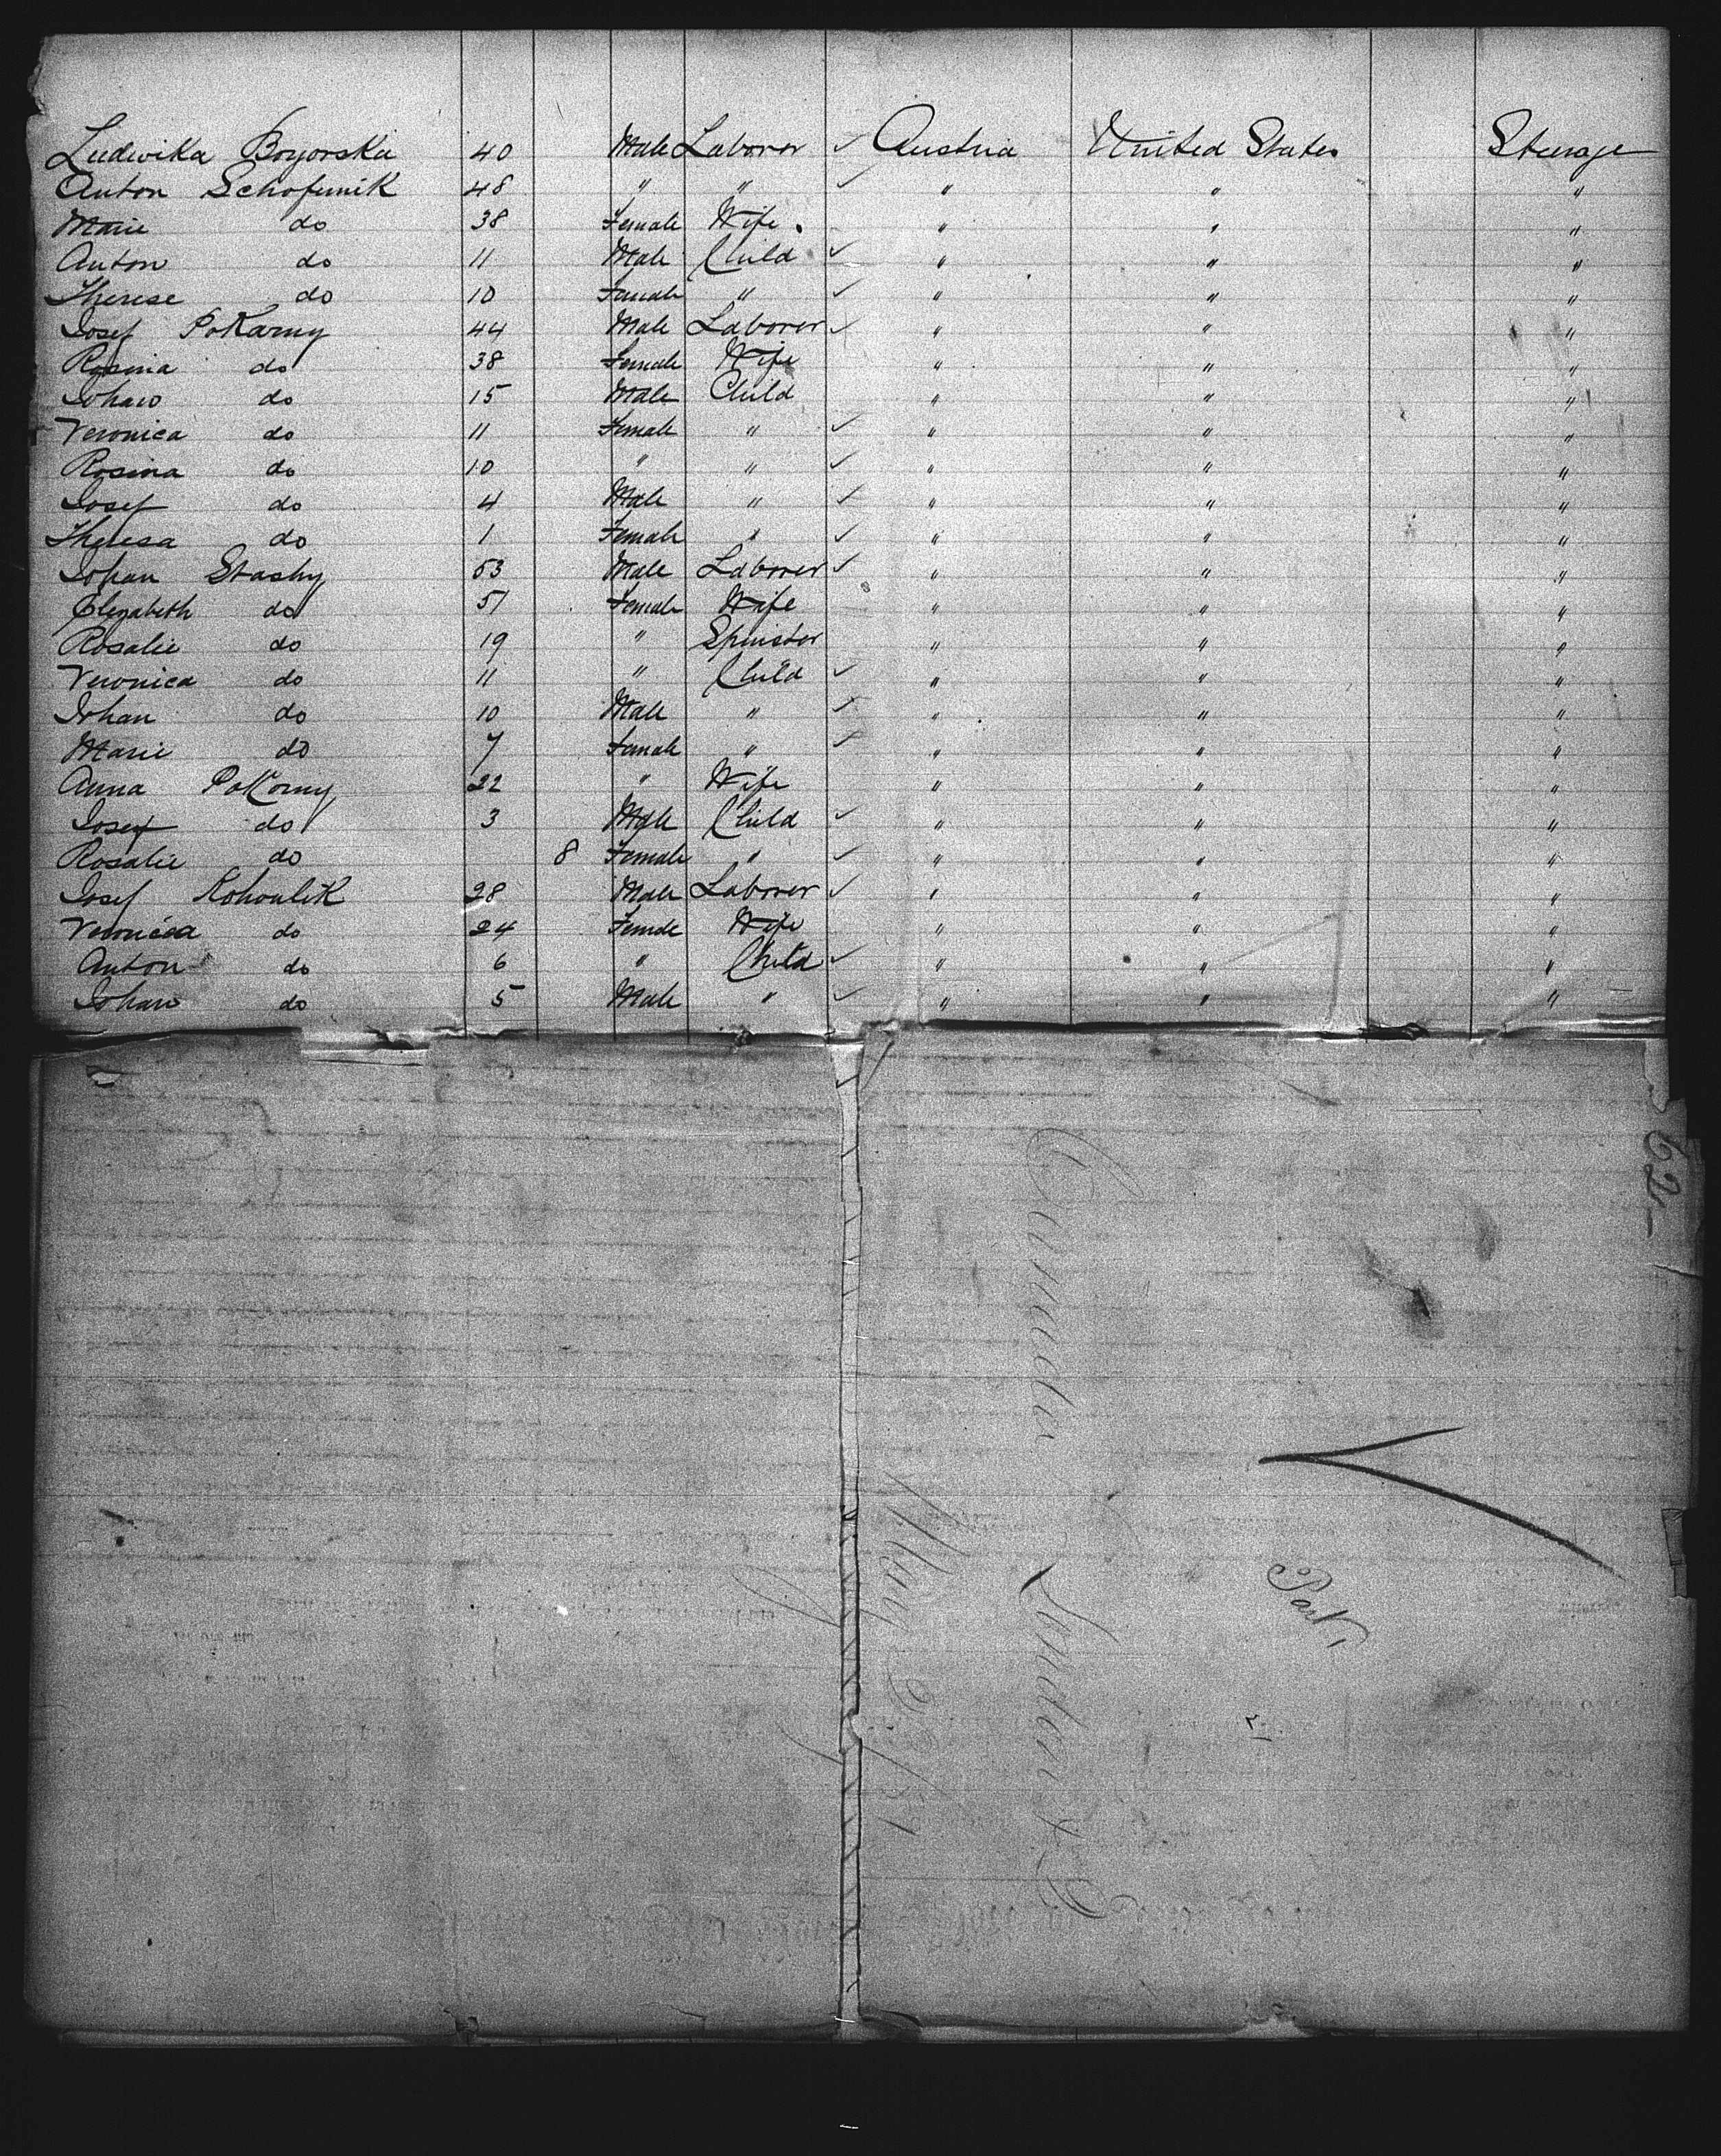 Ludwika Boyorska 40 Male Laborer ✓ Austria United States Steerage
Anton Schofunik 48 " " ✓ " " "
Marie do 38 Female Wife. " " "
Anton do 11 Male Child ✓ " " "
Therese do 10 Female " ✓ " " "
Josef PoKarny 44 Male Laborer ✓ " " "
Rosina do 38 Female Wife " " "
Johan do 15 Male Child " " "
Veronica do 11 Female " ✓ " " "
Rosina do 10 " " ✓ " " "
Josef do 4 Male " ✓ " " "
Theresa do 1 Female " ✓ " " "
Johan Stashy 53 Male Laborer ✓ " " "
Elizabeth do 51 Female Wife " " "
Rosalie do 19 " Spinster " " "
Veronica do 11 " Child ✓ " " "
Johan do 10 Male " ✓ " " "
Marie do 7 Female " ✓ " " "
Anna PoKorny 22 " Wife " " "
Josef do 3 Male Child ✓ " " "
Rosalie do 8 Female " ✓ " " "
Josef KohoulíK 28 Male Laborer ✓ " " "
Veronica do 24 Female Wife " " "
Anton do 6 " Child ✓ " " "
Johan do 5 Male " ✓ " " "
62
Part
London
May